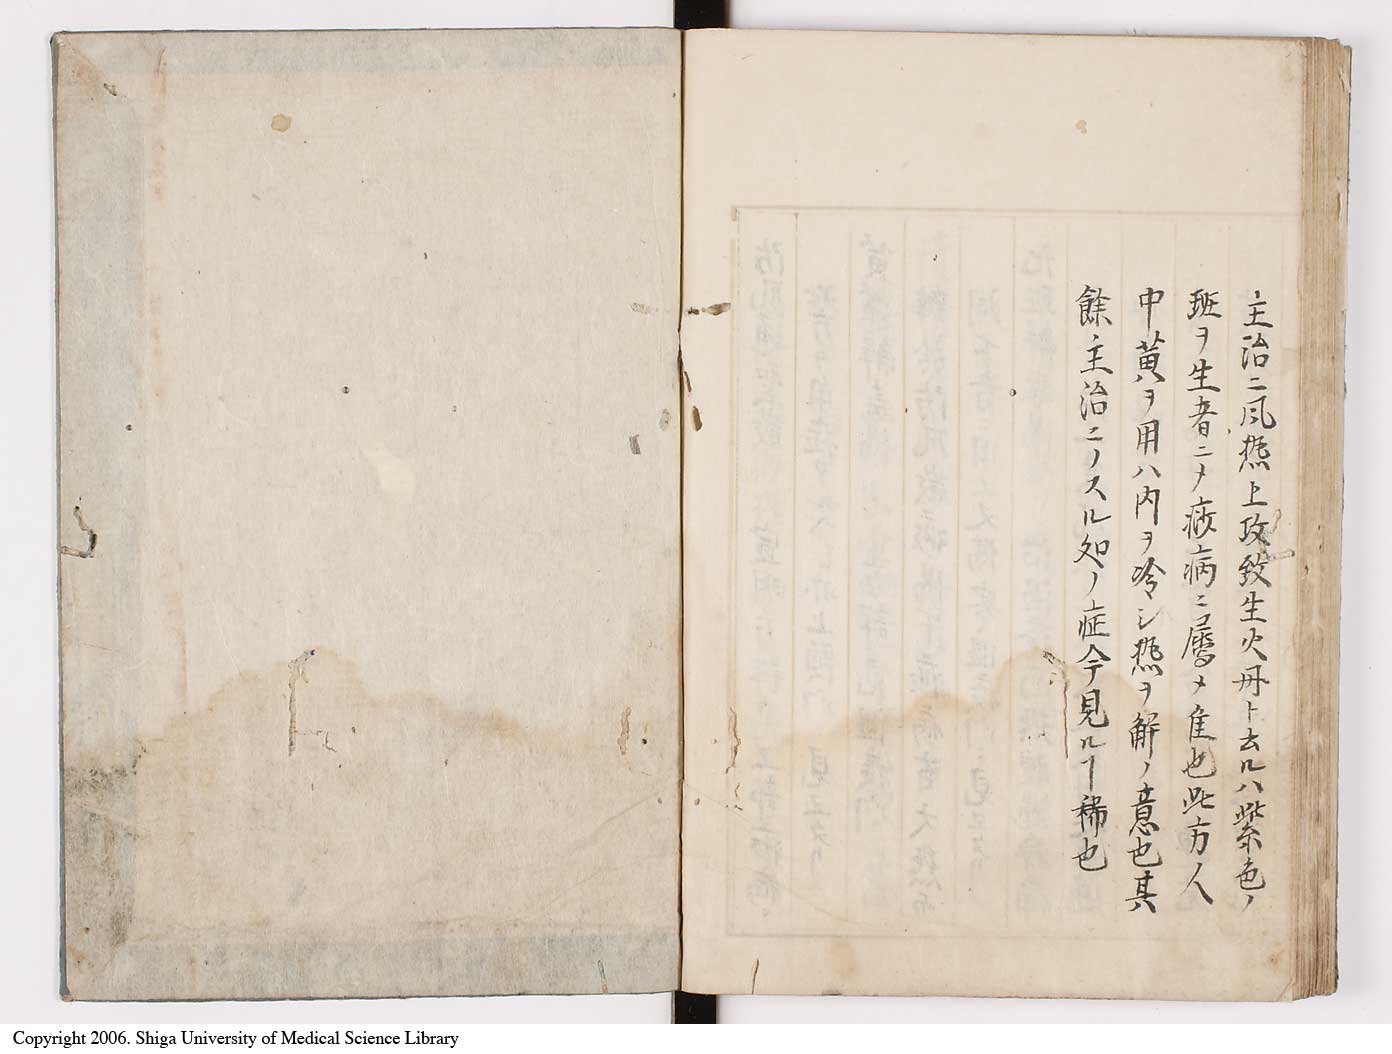 主治ニ風𤍠上攻致生火丹ト去ルハ紫色ノ
班ヲ生者ニメ痧病ニ属メ隹也此方人
中黄ヲ用ハ内ヲ冷シ𤍠ヲ解ノ意也其
餘主治ニノスル処ノ症今見ルヿ稀也
Copyright 2006. Shiga University of Medical Science Library